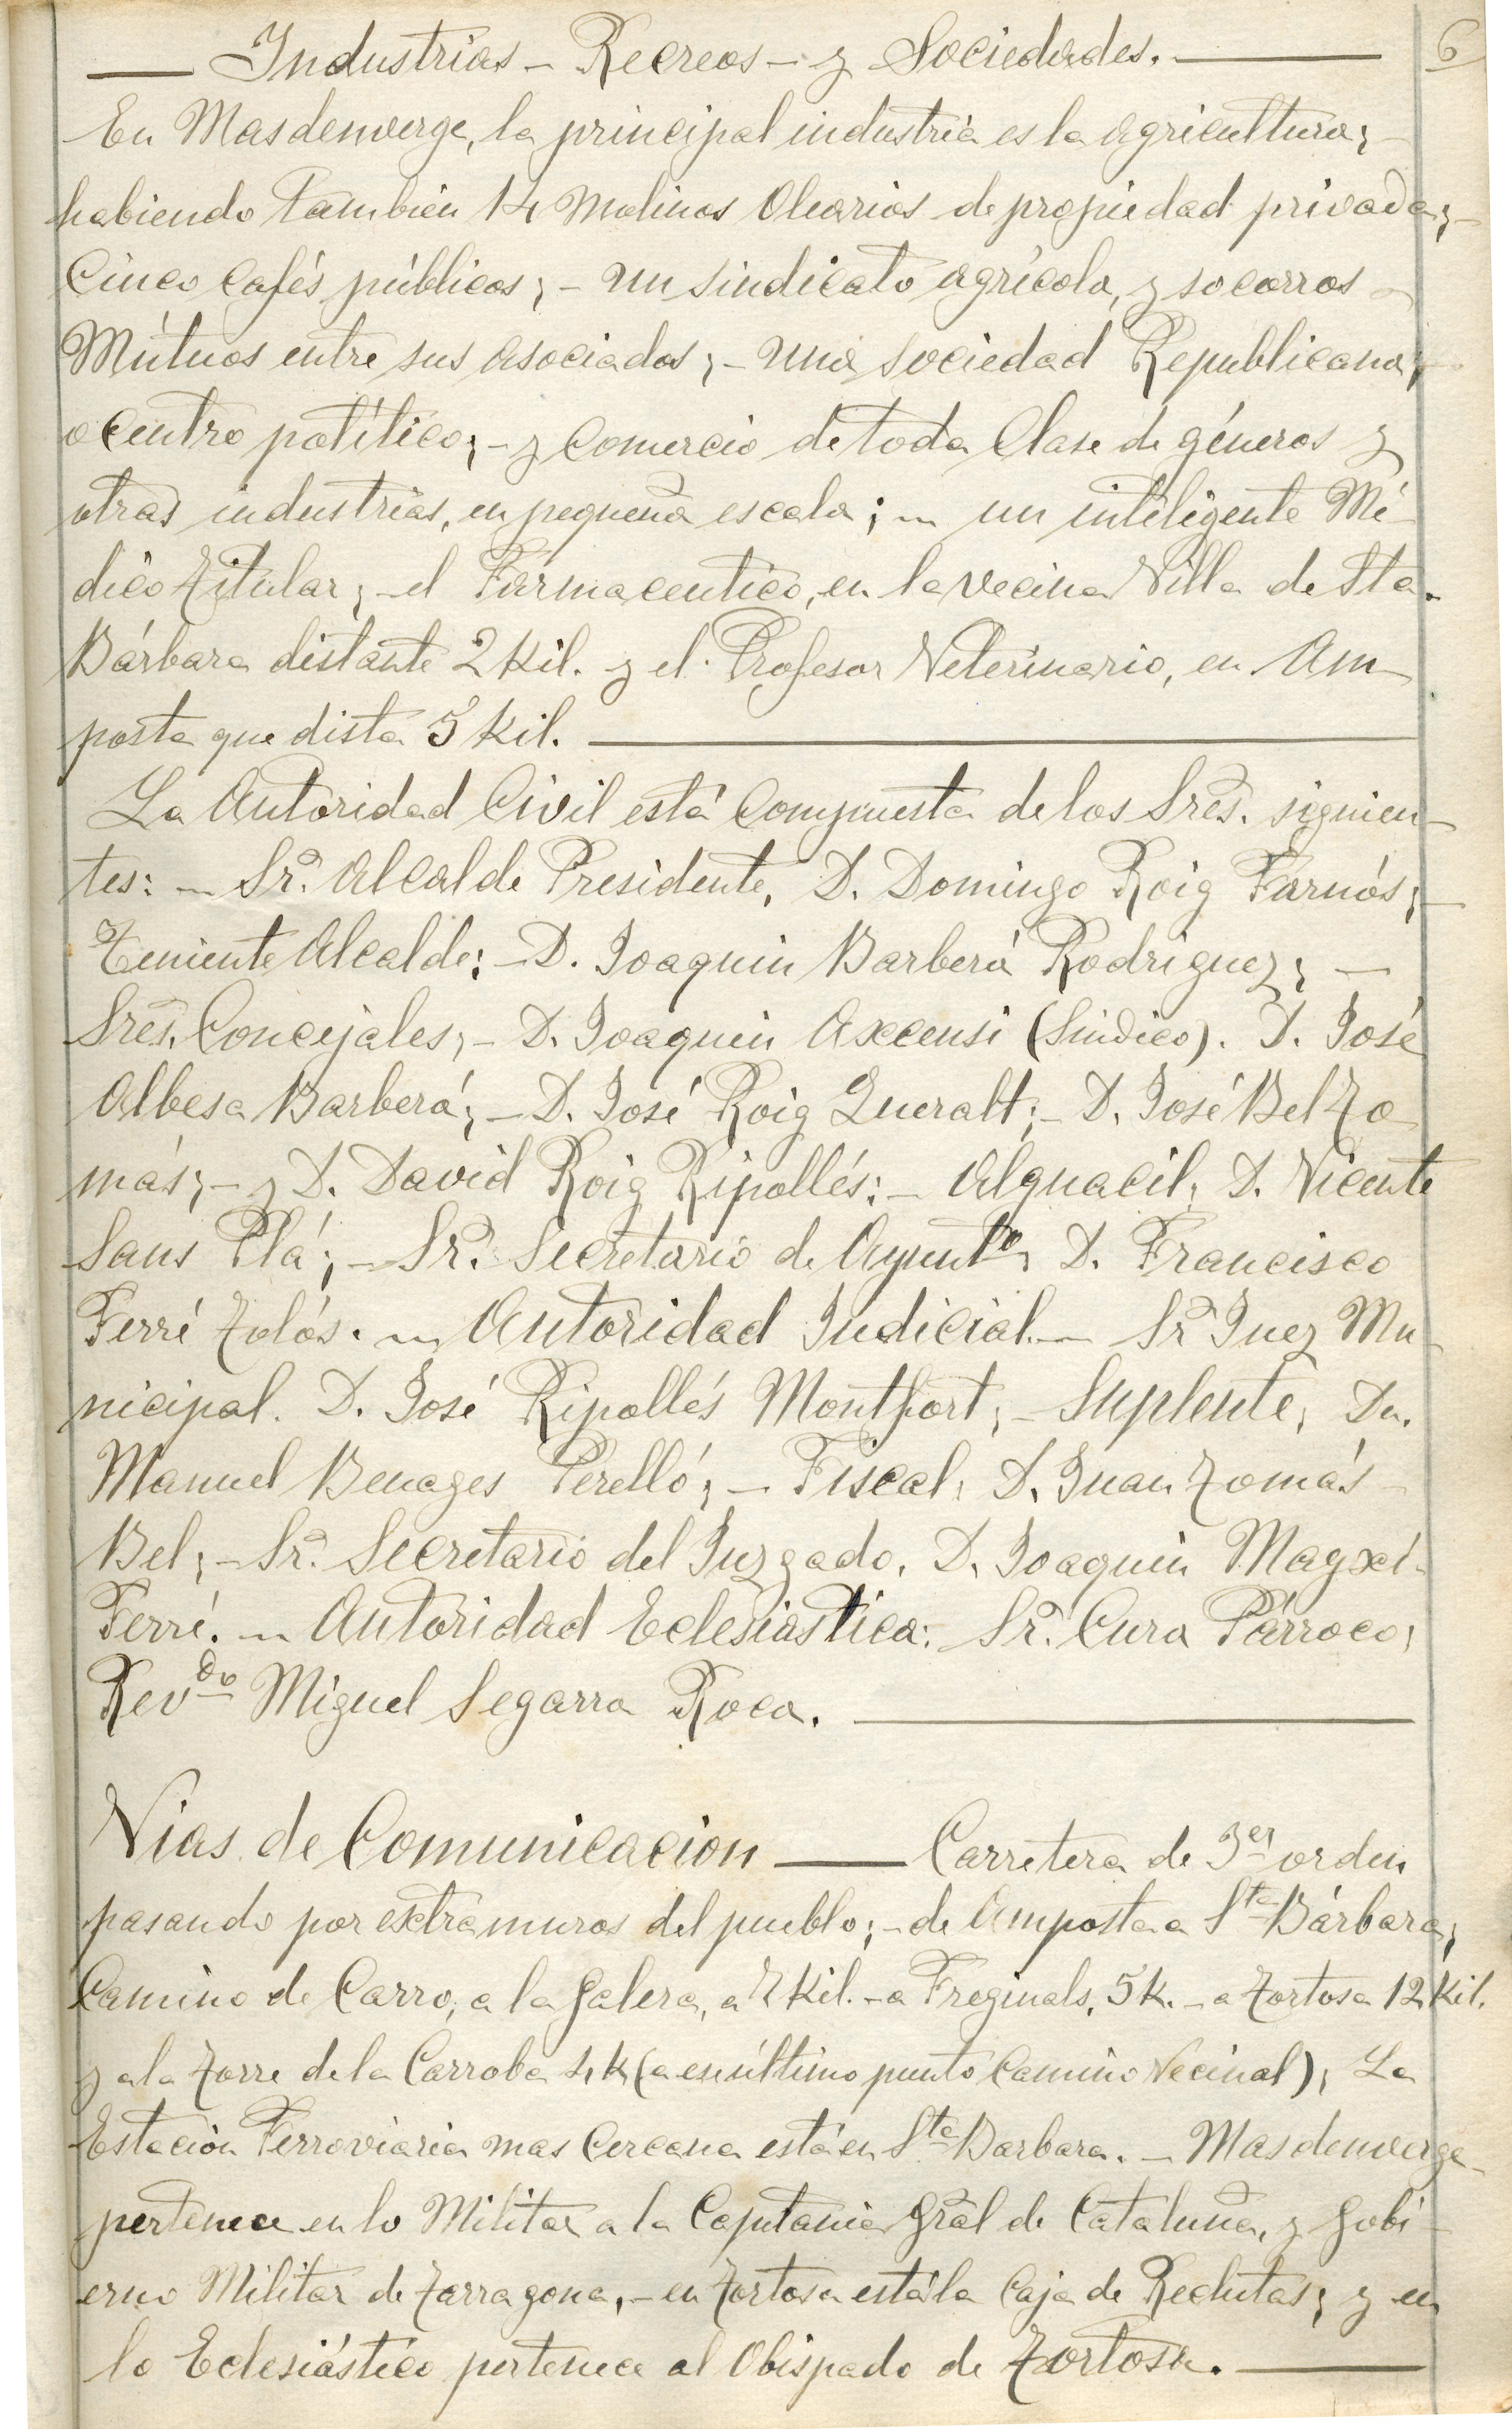 Industrias - Recreos - y Sociedades. 6
En Masdenverge, la principal industria es la agricultura; -
habiendo tambien 14 Molinos Olearios de propiedad privada; -
Cinco Cafés públicos; - un sindicato agrícola, y socorros -
Mútuos entre sus asociados; - una sociedad Republicana;
o centro político; - y Comercio de toda Clase de géneros y
otras industrias, en pequeña escala; - un inteligente Mé-
dico Titular; - el Farmaceutico, en la vecina Villa de Sta.
Bárbara distante 2 Kil. y el Profesor Veterinario, en Am-
posta que dista 5 Kil.
La Autoridad Civil está Compuesta de los Sres. siguien-
tes: - Sr. Alcalde Presidente, D. Domingo Roig Farnós; -
Teniente Alcalde; - D. Joaquin Barberá Rodriguez; -
Sres. Concejales; - D. Joaquin Axcensi (Sindico). D. José
Albesa Barberá; - D. José Roig Queralt; - D. José Bel To-
más; - y D. David Roig Ripollés: - Alguacil, D. Vicente
Sans Plá; - Sr. Secretario de Ayuntº, D. Francisco
Ferré Tolós. - Autoridad Judicial. - Sr Juez Mu-
nicipal. D. José Ripollés Montfort; - Suplente, Dn.
Manuel Benages Perelló; - Fiscal, D. Juan Tomás -
Bel; - Sr. Secretario del Juzgado, D. Joaquin Magxí-
Ferré. - Autoridad Eclesiástica: Sr. Cura Párroco,
Revdo Miguel Segarra Roca.
Vias de Comunicacion — Carretera de 3er orden
pasando por extramuros del pueblo; - de Amposta a Sta Bárbara;
Camino de Carro, a la Galera, a 7 Kil. - a Freginals, 5 k. - a Tortosa 12 Kil.
y a la Torre de la Carroba 4 k (a ese último punto Camino Vecinal); La
Estación Ferroviaria mas Cercana está en Sta Barbara. - Masdenverge
pertenece en lo Militar a la Capitania Gral de Cataluña, y Gobi-
erno Militar de Tarragona, - en Tortosa está la Caja de Reclutas; y en
lo Eclesiástico pertenece al Obispado de Tortosa.